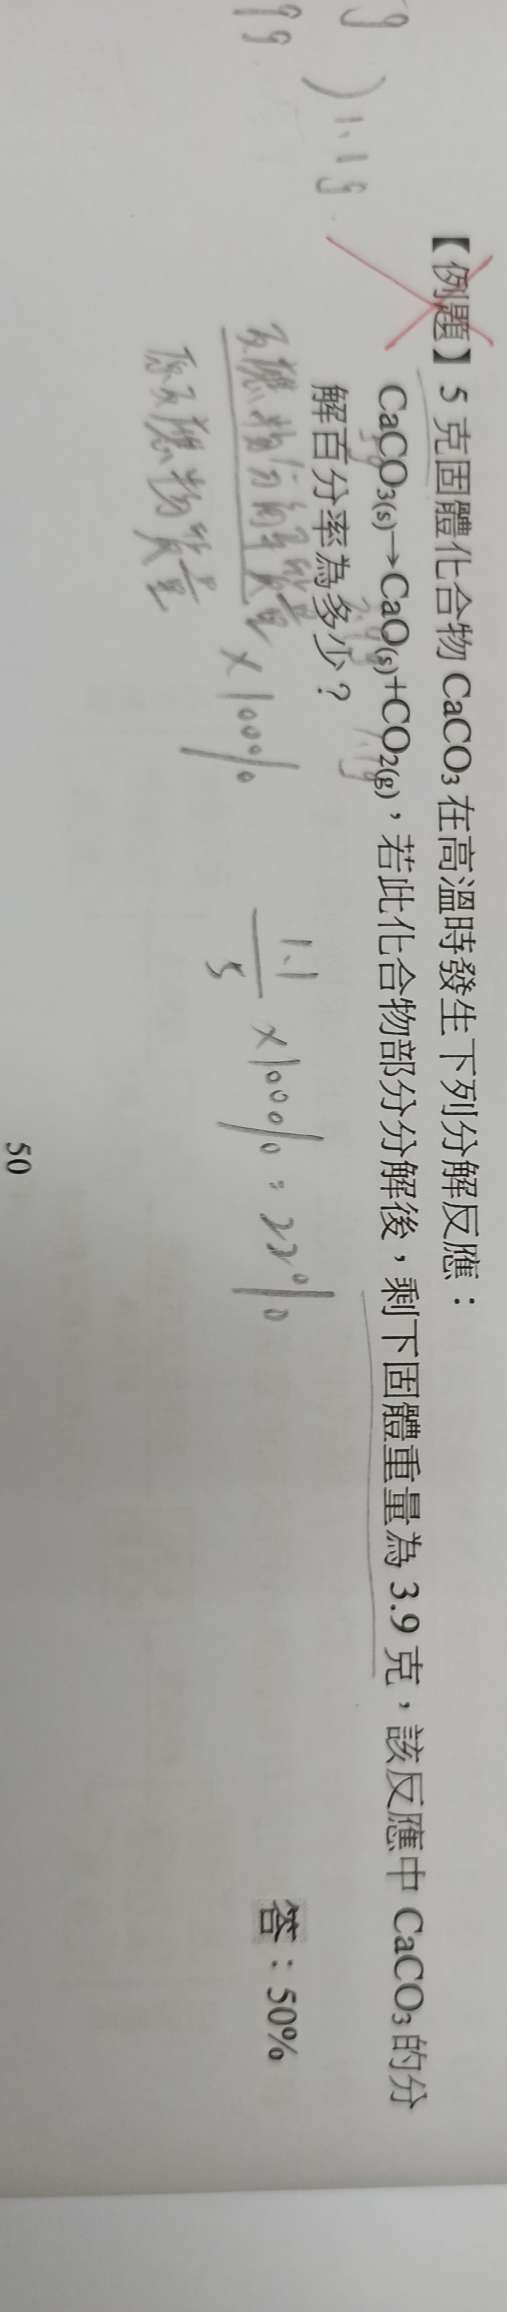 【例題】5 克固體化合物 CaCO₃ 在高溫時發生下列分解反應：
CaCO₃₍ₛ₎→CaO₍ₛ₎+CO₂(g)，若此化合物部分分解後，剩下固體重量為 3.9 克，該反應中 CaCO₃ 的分
解百分率為多少？
答：50%
1.1g
1.1g
× 100%
原反應物質量
1.1
5
×100% = 22%
50